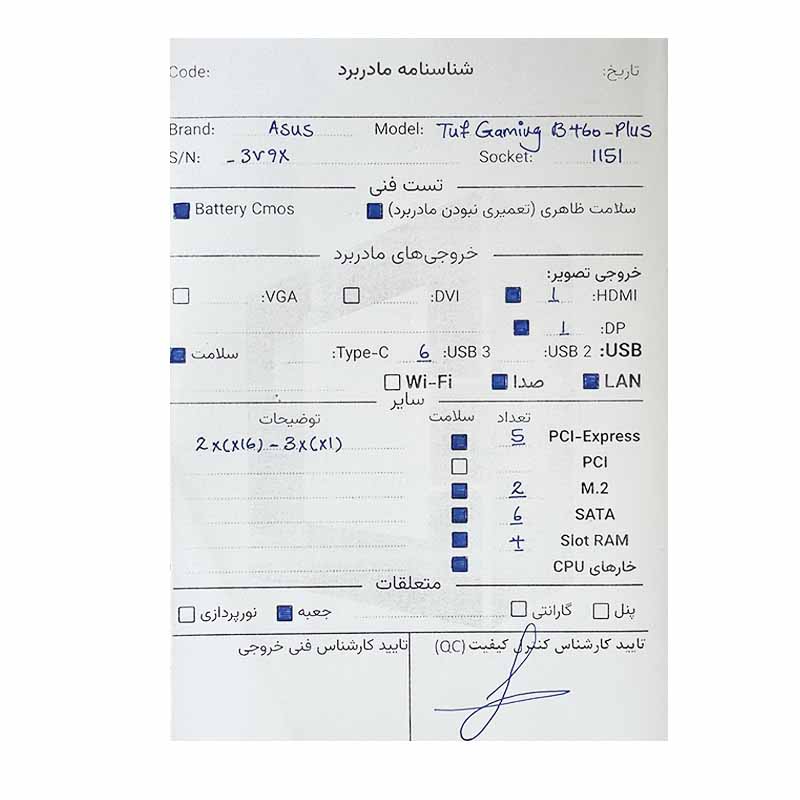 شناسنامه مادربرد
تاریخ:
Code:
Brand: Asus Model: Tuf Gaming B460-Plus
S/N: - 3V9X Socket: 1151
تست فنی
سلامت ظاهری (تعمیری نبودن مادربرد)
Battery Cmos
خروجی‌های مادربرد
خروجی تصویر:
HDMI: 1 DVI: VGA:
DP: 1
USB: USB 2: USB 3: 6 Type-C: سلامت
LAN صدا Wi-Fi
سایر
تعداد سلامت توضیحات
PCI-Express 5 2x(x16) - 3x(x1)
PCI
M.2 2
SATA 6
Slot RAM 4
خارهای CPU
متعلقات
پنل گارانتی جعبه نورپردازی
تایید کارشناس کنترل کیفیت (QC) تایید کارشناس فنی خروجی